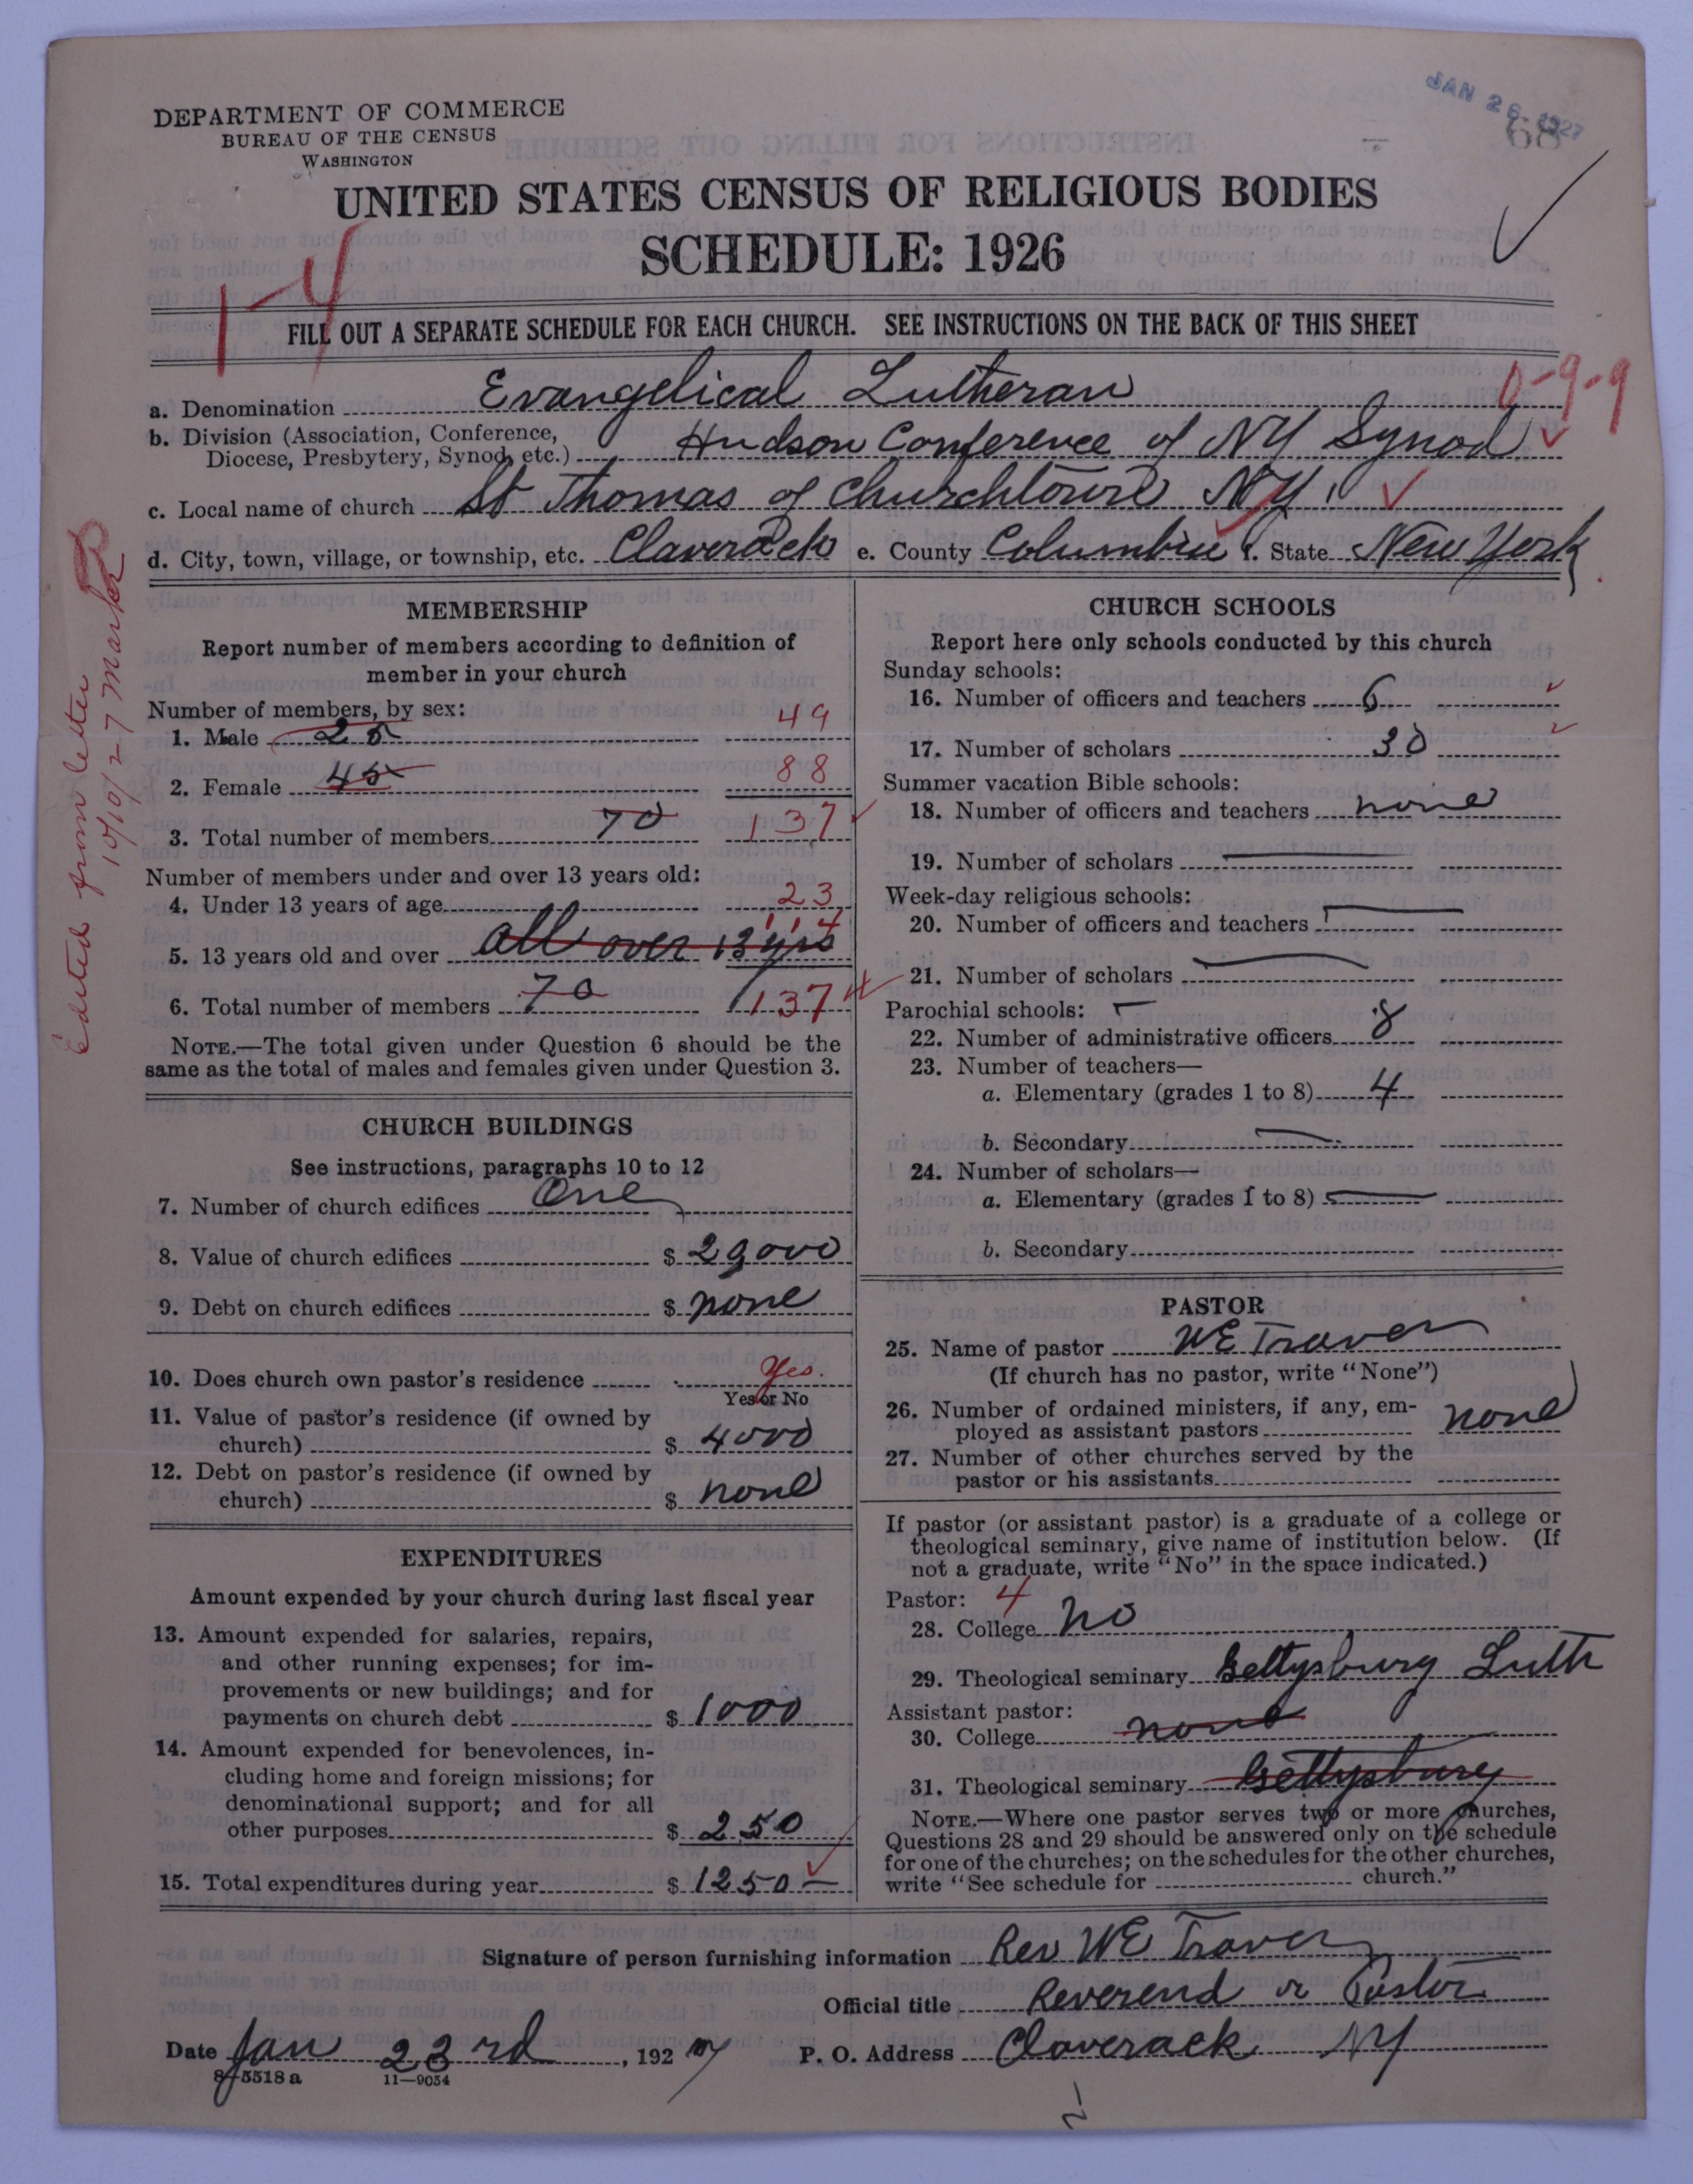 JAN 26 1927
68
DEPARTMENT OF COMMERCE
BUREAU OF THE CENSUS
WASHINGTON
UNITED STATES CENSUS OF RELIGIOUS BODIES
SCHEDULE: 1926
FILL OUT A SEPARATE SCHEDULE FOR EACH CHURCH. SEE INSTRUCTIONS ON THE BACK OF THIS SHEET
0-9-9
a. Denomination Evangelical Lutheran
b. Division (Association, Conference,
Diocese, Presbytery, Synod, etc.) Hudson Conference of NY Synod
c. Local name of church St Thomas of Churchtown NY.
d. City, town, village, or township, etc. Claverack e. County Columbia f. State New York
Edited from letter
10/10/27 Marker
MEMBERSHIP
Report number of members according to definition of
member in your church
Number of members, by sex:
1. Male 25 49
2. Female 45 88
3. Total number of members 70 137
Number of members under and over 13 years old:
4. Under 13 years of age 23
5. 13 years old and over all over 13 yrs 114
6. Total number of members 70 137
NOTE.—The total given under Question 6 should be the
same as the total of males and females given under Question 3.
CHURCH BUILDINGS
See instructions, paragraphs 10 to 12
7. Number of church edifices One
8. Value of church edifices $ 29000
9. Debt on church edifices $ none
10. Does church own pastor's residence Yes.
Yes or No
11. Value of pastor's residence (if owned by
church) $ 4000
12. Debt on pastor's residence (if owned by
church) $ none
EXPENDITURES
Amount expended by your church during last fiscal year
13. Amount expended for salaries, repairs,
and other running expenses; for im-
provements or new buildings; and for
payments on church debt $ 1000
14. Amount expended for benevolences, in-
cluding home and foreign missions; for
denominational support; and for all
other purposes $ 250
15. Total expenditures during year $ 1250 —
CHURCH SCHOOLS
Report here only schools conducted by this church
Sunday schools:
16. Number of officers and teachers 6
17. Number of scholars 30
Summer vacation Bible schools:
18. Number of officers and teachers none
19. Number of scholars
Week-day religious schools:
20. Number of officers and teachers
21. Number of scholars
Parochial schools:
22. Number of administrative officers 8
23. Number of teachers—
a. Elementary (grades 1 to 8) 4
b. Secondary
24. Number of scholars—
a. Elementary (grades 1 to 8)
b. Secondary
PASTOR
25. Name of pastor WE Traver
(If church has no pastor, write "None")
26. Number of ordained ministers, if any, em-
ployed as assistant pastors none
27. Number of other churches served by the
pastor or his assistants
If pastor (or assistant pastor) is a graduate of a college or
theological seminary, give name of institution below. (If
not a graduate, write "No" in the space indicated.)
Pastor: 4
28. College no
29. Theological seminary Gettysburg Luth
Assistant pastor:
30. College none
31. Theological seminary Gettysburg
NOTE.—Where one pastor serves two or more churches,
Questions 28 and 29 should be answered only on the schedule
for one of the churches; on the schedules for the other churches,
write "See schedule for church."
Signature of person furnishing information Rev WE Traver
Official title Reverend or Pastor
Date Jan 23rd, 1927 P. O. Address Claverack NY
8-5518 a 11—9054